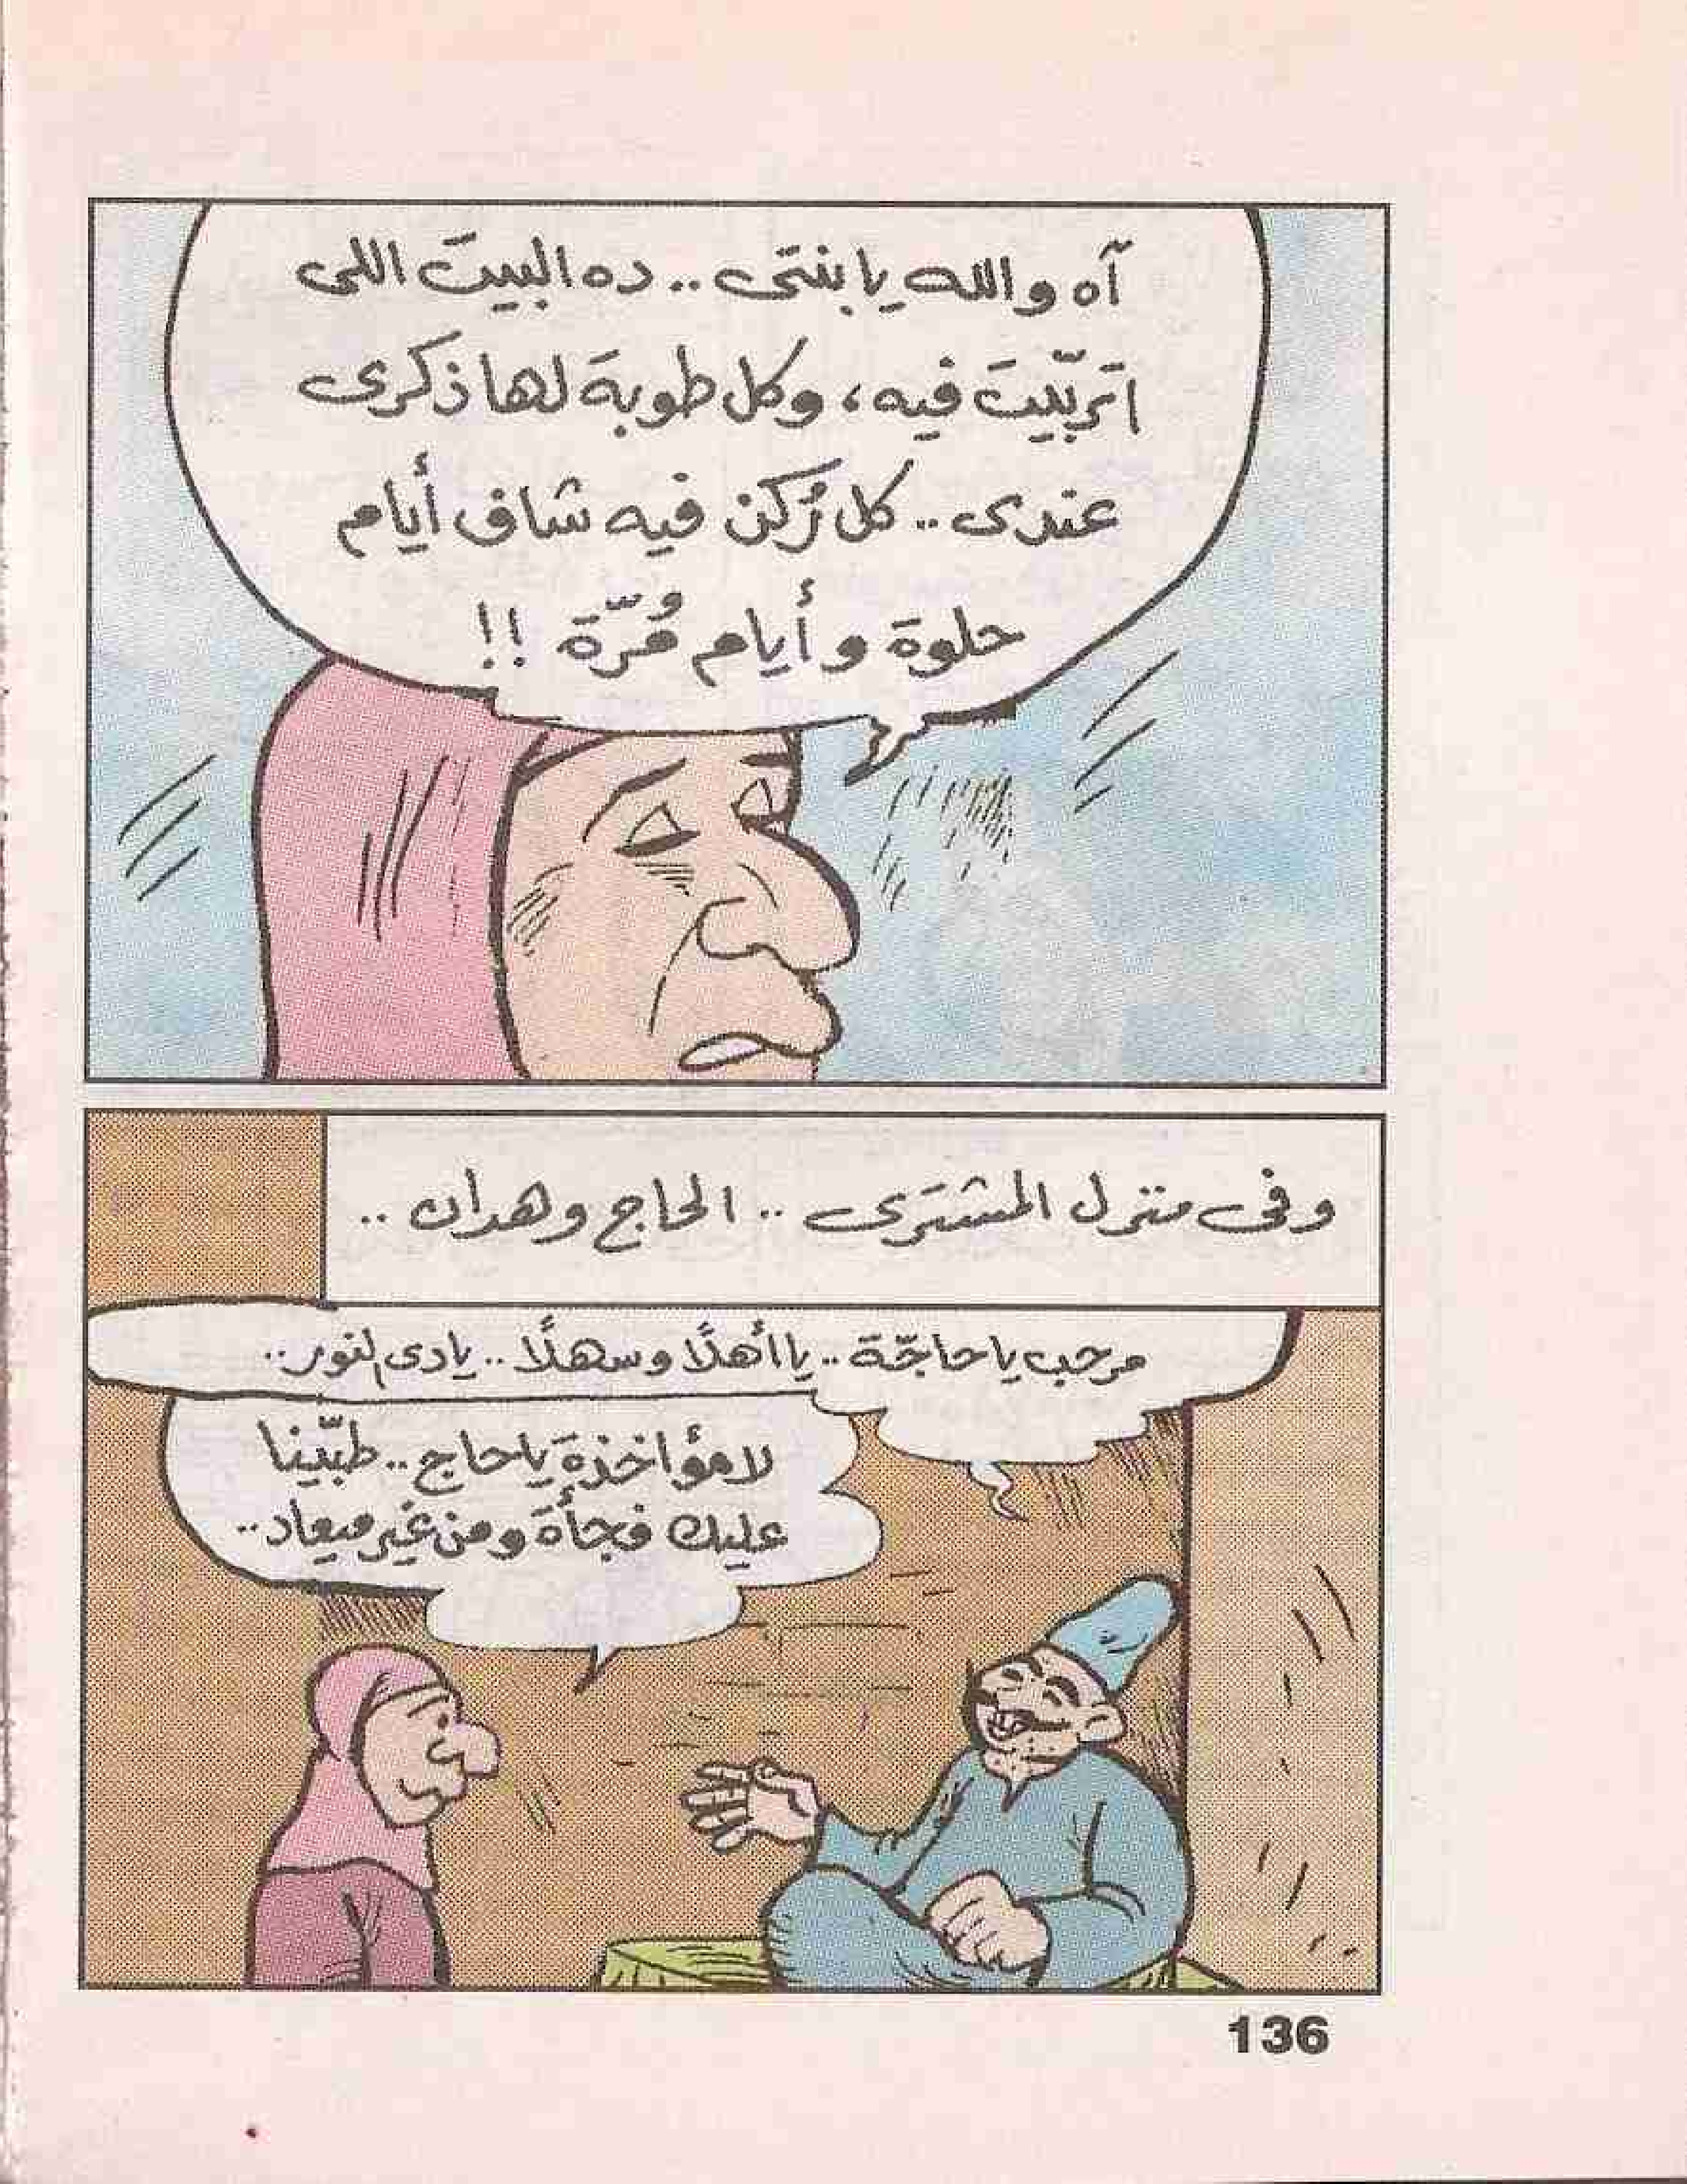 آه والله يا بنتى .. ده البيت اللى
اتربّيت فيه ، وكل طوبة لها ذكرى
عندى .. كل رُكن فيه شاف أيام
حلوة و أيام مُرّة !!
وفى منزل المشترى .. الحاج وهدان ..
مرحب يا حاجّة .. يا أهلًا وسهلًا .. يادى النور ..
لا مؤاخذة يا حاج .. طبّينا
عليك فجأة ومن غير ميعاد ..
136